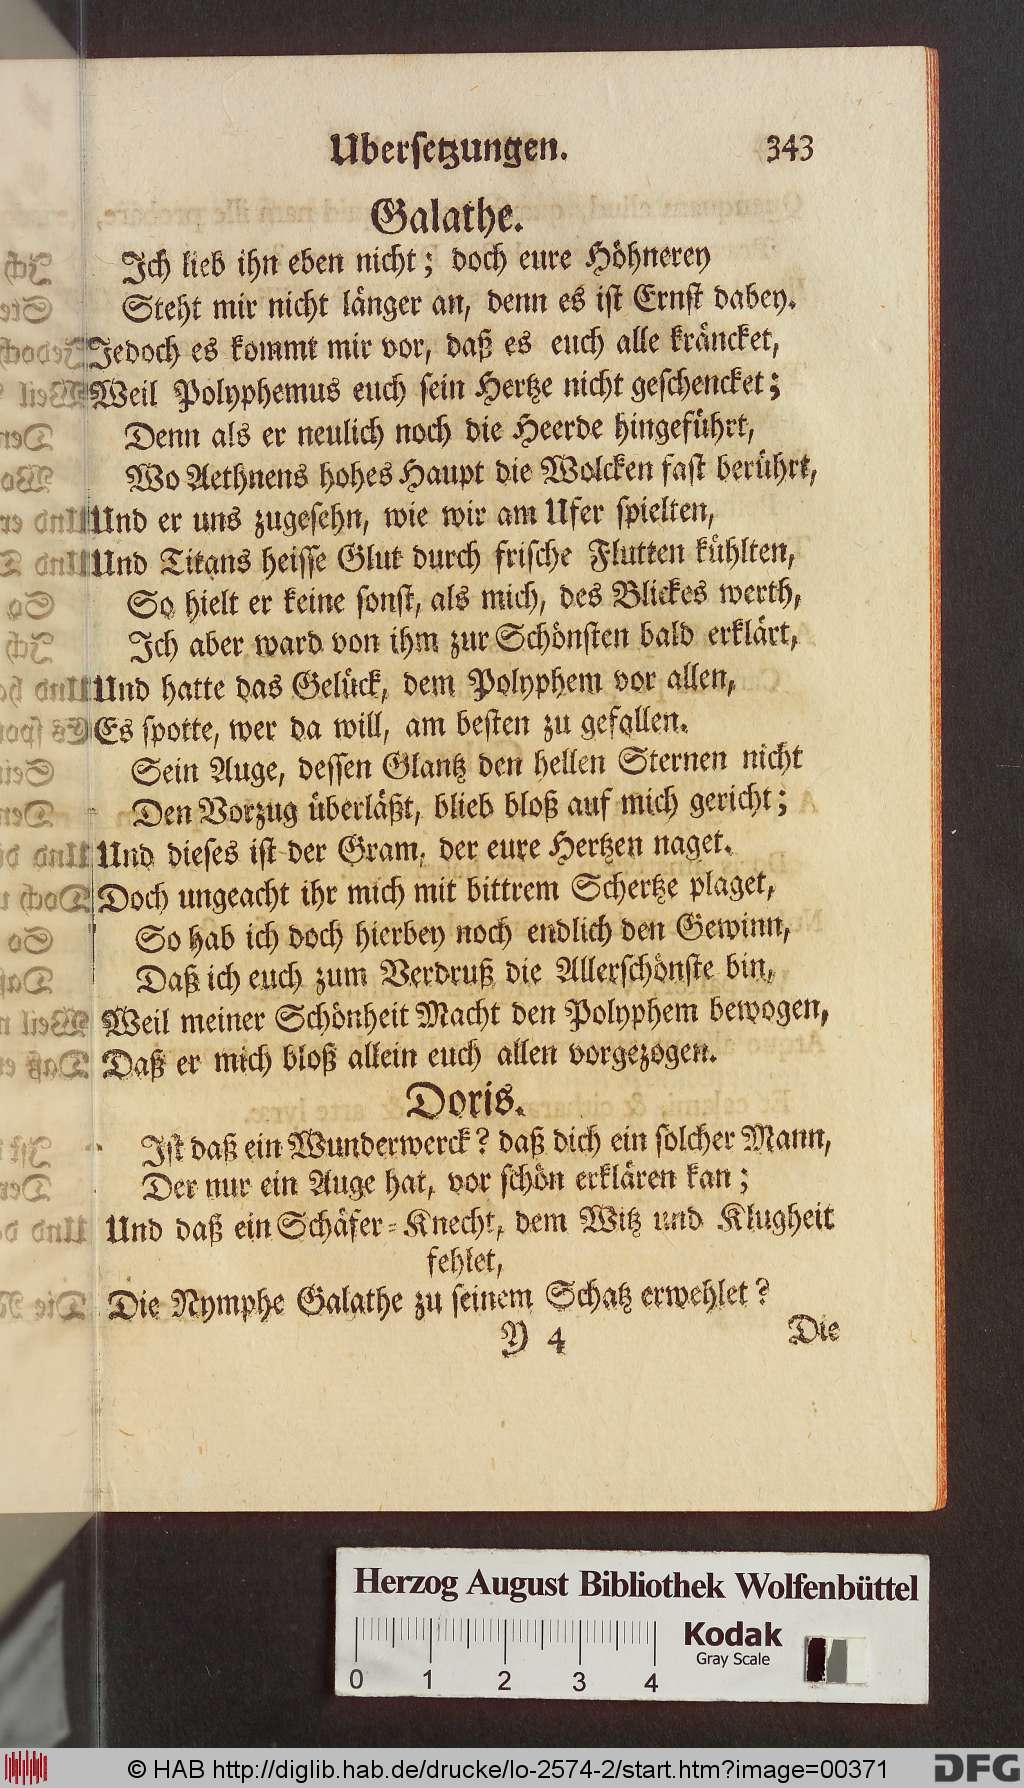 Ubersetzungen. 343
Galathe.
Ich lieb ihn eben nicht; doch eure Höhnerey
Steht mir nicht länger an, denn es ist Ernst dabey.
Jedoch es kommt mir vor, daß es euch alle kräncket,
Weil Polyphemus euch sein Hertze nicht geschencket;
Denn als er neulich noch die Heerde hingeführt,
Wo Aethnens hohes Haupt die Wolcken fast berührt,
Und er uns zugesehn, wie wir am Ufer spielten,
Und Titans heisse Glut durch frische Flutten kühlten,
So hielt er keine sonst, als mich, des Blickes werth,
Ich aber ward von ihm zur Schönsten bald erklärt,
Und hatte das Gelück, dem Polyphem vor allen,
Es spotte, wer da will, am besten zu gefallen.
Sein Auge, dessen Glantz den hellen Sternen nicht
Den Vorzug überläßt, blieb bloß auf mich gericht;
Und dieses ist der Gram, der eure Hertzen naget.
Doch ungeacht ihr mich mit bittrem Schertze plaget,
So hab ich doch hierbey noch endlich den Gewinn,
Daß ich euch zum Verdruß die Allerschönste bin,
Weil meiner Schönheit Macht den Polyphem bewogen,
Daß er mich bloß allein euch allen vorgezogen.
Doris.
Ist daß ein Wunderwerck? daß dich ein solcher Mann,
Der nur ein Auge hat, vor schön erklären kan;
Und daß ein Schäfer-Knecht, dem Witz und Klugheit
fehlet,
Die Nymphe Galathe zu seinem Schatz erwehlet?
Y 4 Die
Herzog August Bibliothek Wolfenbüttel
Kodak
Gray Scale
0 1 2 3 4
© HAB http://diglib.hab.de/drucke/lo-2574-2/start.htm?image=00371
DFG